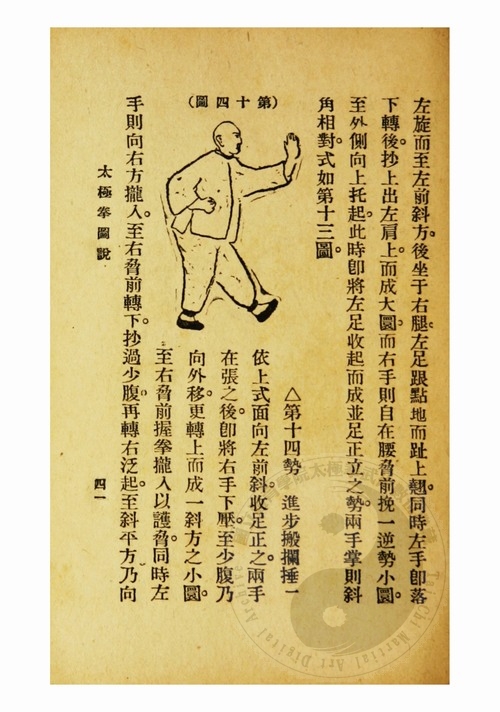 左旋而至左前斜方。後坐于右腿。左足跟點地而趾上翹。同時左手卽落
下轉後。抄上出左肩上。而成大圓。而右手則自在腰脅前挽一逆勢小圓。
至外側向上托起。此時卽將左足收起而成並足正立之勢。兩手掌則斜
角相對。式如第十三圖。
(第十四圖)
△第十四勢　進步搬攔捶一
依上式面向左前斜。收足正之。兩手
在張之後。卽將右手下壓。至少腹乃
向外移。更轉上而成一斜方之小圓。
至右脅前握拳攏入以護脅。同時左
手則向右方攏入。至右脅前轉下。抄過少腹。再轉右泛起。至斜平方。乃向
太極拳圖說
四一